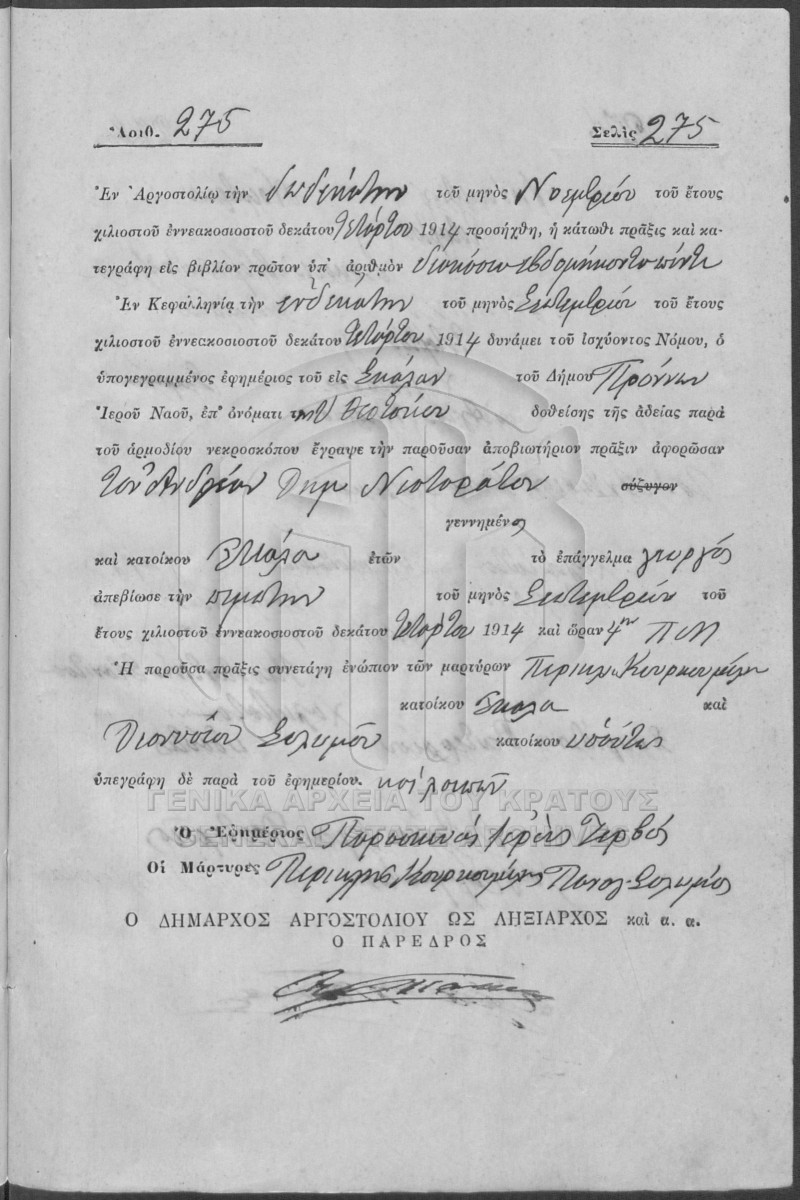 Ἀριθ. 275 Σελὶς 275
Ἐν Ἀργοστολίῳ τὴν δωδεκάτην τοῦ μηνὸς Νοεμβρίου τοῦ ἔτους
χιλιοστοῦ ἐννεακοσιοστοῦ δεκάτου τετάρτου 1914 προσήχθη, ἡ κάτωθι πρᾶξις καὶ κα-
τεγράφη εἰς βιβλίον πρῶτον ὑπ' ἀριθμὸν διακόσια ἑβδομήκοντα πέντε
Ἐν Κεφαλληνίᾳ τὴν ἑνδεκάτην τοῦ μηνὸς Σεπτεμβρίου τοῦ ἔτους
χιλιοστοῦ ἐννεακοσιοστοῦ δεκάτου τετάρτου 1914 δυνάμει τοῦ ἰσχύοντος Νόμου, ὁ
ὑπογεγραμμένος ἐφημέριος τοῦ εἰς Σκάλαν τοῦ Δήμου Πρόννων
Ἱεροῦ Ναοῦ, ἐπ' ὀνόματι τῆς Θεοτόκου δοθείσης τῆς ἀδείας παρὰ
τοῦ ἁρμοδίου νεκροσκόπου ἔγραψε τὴν παροῦσαν ἀποβιωτήριον πρᾶξιν ἀφορῶσαν
τὸν Ἀνδρέαν Δημ Νεοτοράτον σύζυγον
γεννημένο
καὶ κατοίκου Σκάλα ἐτῶν τὸ ἐπάγγελμα γεωργός
ἀπεβίωσε τὴν πέμπτην τοῦ μηνὸς Σεπτεμβρίου τοῦ
ἔτους χιλιοστοῦ ἐννεακοσιοστοῦ δεκάτου τετάρτου 1914 καὶ ὥραν 4ην Π Μ
Ἡ παροῦσα πρᾶξις συνετάγη ἐνώπιον τῶν μαρτύρων Περικλ. Κουρκουμέλη
κατοίκου Σκάλα καὶ
Διονυσίου Σολωμοῦ κατοίκου
ὑπεγράφη δὲ παρὰ τοῦ ἐφημερίου. καὶ λοιπῶν
ΓΕΝΙΚΑ ΑΡΧΕΙΑ ΤΟΥ ΚΡΑΤΟΥΣ
Ὁ Ἐφημέριος Παρασκευᾶς Ἱερεὺς Ζερβός
Οἱ Μάρτυρες Περικλῆς Κουρκουμέλης Παναγ. Σολωμός
Ο ΔΗΜΑΡΧΟΣ ΑΡΓΟΣΤΟΛΙΟΥ ΩΣ ΛΗΞΙΑΡΧΟΣ καὶ α. α.
Ο ΠΑΡΕΔΡΟΣ